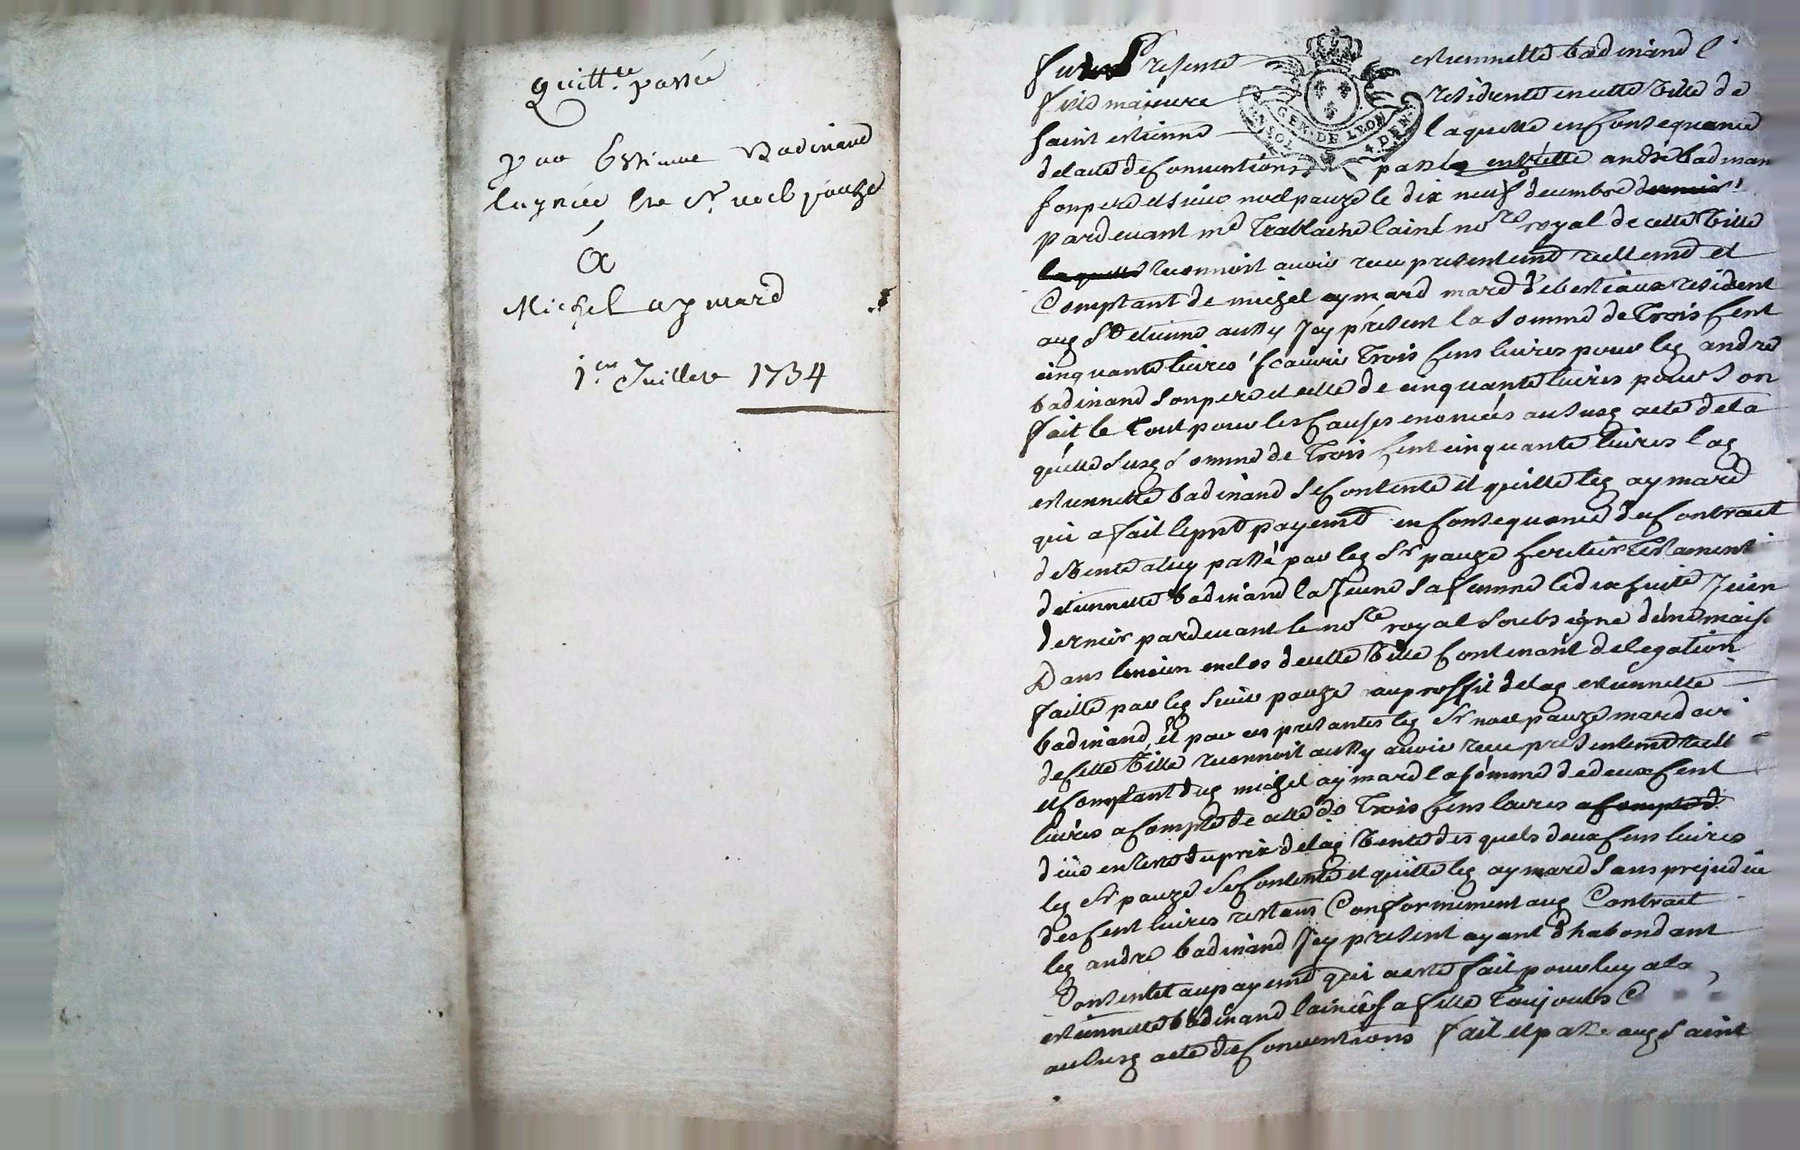 Quitt.ce passée
par Estienne Badinand
laynée & Sr. noel pauze
à
Michel aymard
1er. Juillet 1734
fut Presente estiennette badinand l'
fille majeure residente en cette ville de
saint estienne laquelle en consequance
de lacte de conventions passés entre elle andré badinan
son pere et sieur noel pauze le dix neuf decembre dernier
pardevant me Trablaine lainé nore royal de cette ville
laquelle reconnoit avoir receu presentemt reellemt et
Comptant de michel aymard mard de bestiaux resident
aug St etienne aussy Jcy present la somme de Trois cent
cinquante livres scavoir Trois cens livres pour leg andré
badinand son pere et celle de cinquante livres pour son
fait le tout pour les causes enoncées au susg acte de la
quelle susg somme de Trois cent cinquante livres lag
estiennette badinand se contente et quitte leg aymard
qui a fait le pnt payemt en consequance du contrait
de vente a luy passé par leg Sr pauze heritier testament
detiennette badinand la Jeune sa femme le dix huite Juin
dernier pardevant le nore royal soubsigné dune maison
Dans lencien enclos de cette ville contenant delegation
faitte par leg sieur pauze au proffit de lag estiennette
badinand, et par ces presantes leg Sr noel pauze mard
de cette ville reconnoit aussy avoir receu presentemt reell
et comptant dug michel aymard la somme de deux cent
livres a compte de celle de Trois cens livres a compte d
düe en reste du prix de lag vente des quels deux cens livres
leg Sr pauze se contente et quitte leg aymard sans prejudice
des cent livres restans Conformement aug Contrait
leg andré badinand Jcy present ayant d'habondant
Consentet au payemt qui a esté fait pour luy a la
estiennette badinand lainée sa fille toujours C
au susg acte de conventions fait et passé aug saint
GEN. DE LEON